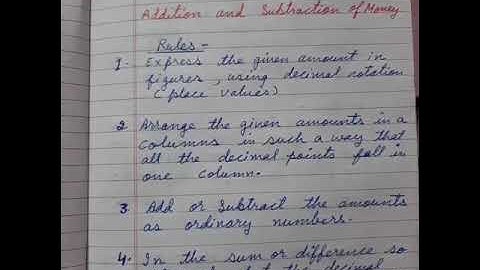 Addition and Subtraction of Money
Rules -
1. Express the given amount in
figures, using decimal notation
(place values)
2 Arrange the given amounts in a
columns in such a way that
all the decimal points fall in
one column.
3 Add or Subtract the amounts
as ordinary numbers.
4. In the sum or difference so
the decimal